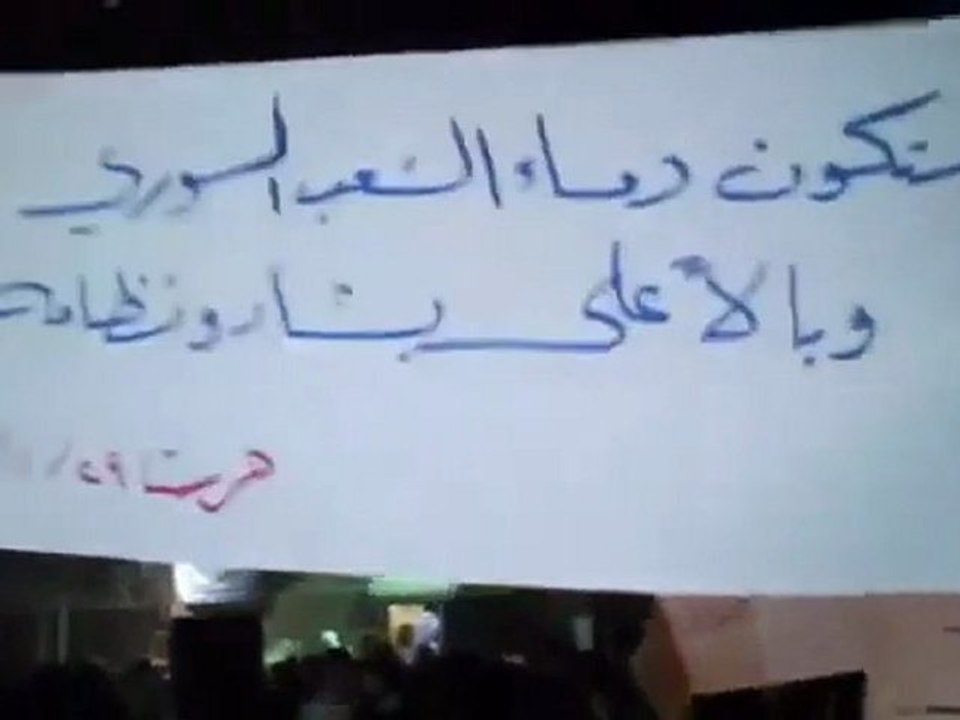 ستكون دماء الشعب السوري
وبالاً على بشار ونظامه
حربتا ٢٩ /